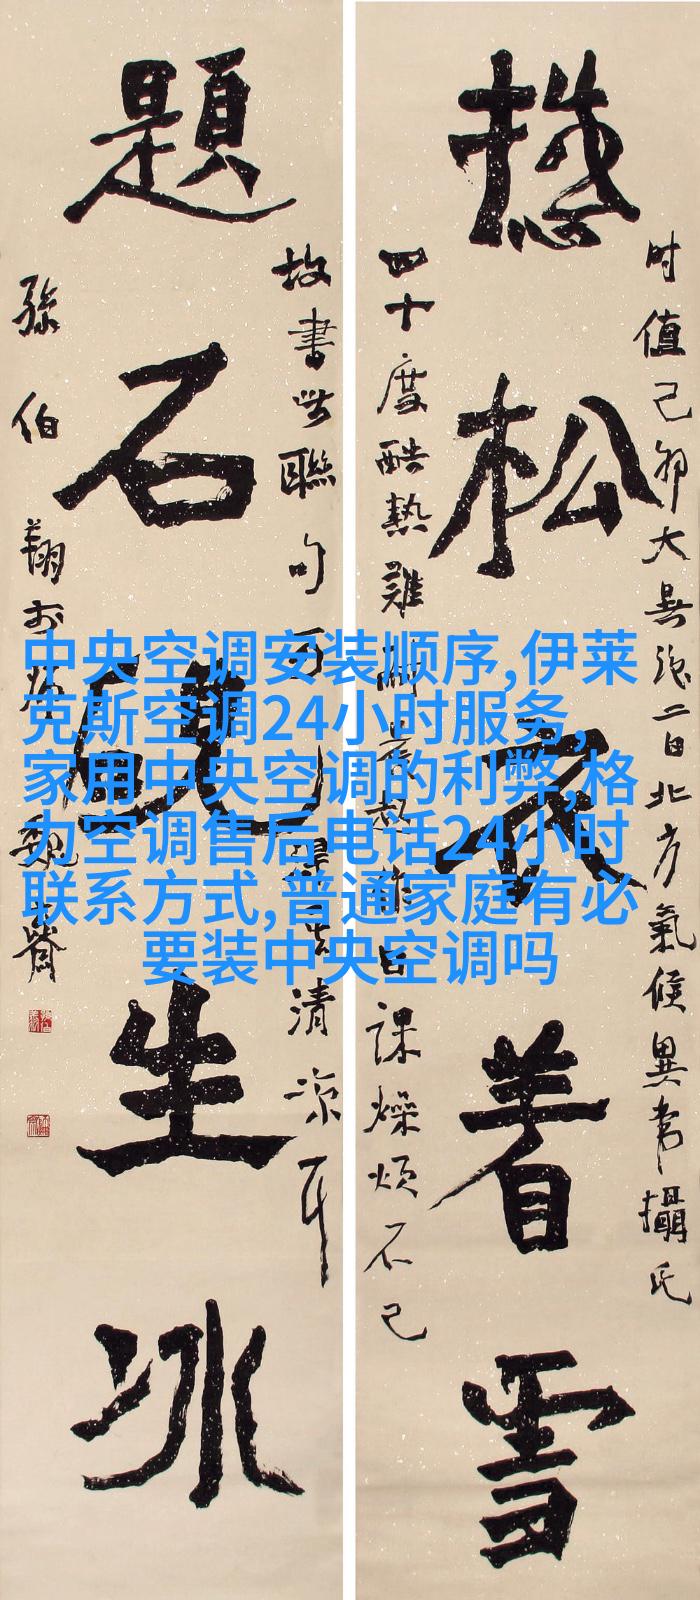 松衣着雪
时值己卯大暑後二日北方氣候異常攝氏
四十度酷熱難耐晨起作日課燥煩不已
題石硯生冰
故書此聯句
清凉耳
孫伯翔於
魏齋
中央空调安装顺序,伊莱
克斯空调24小时服务,
家用中央空调的利弊,格
力空调售后电话24小时
联系方式,普通家庭有必
要装中央空调吗